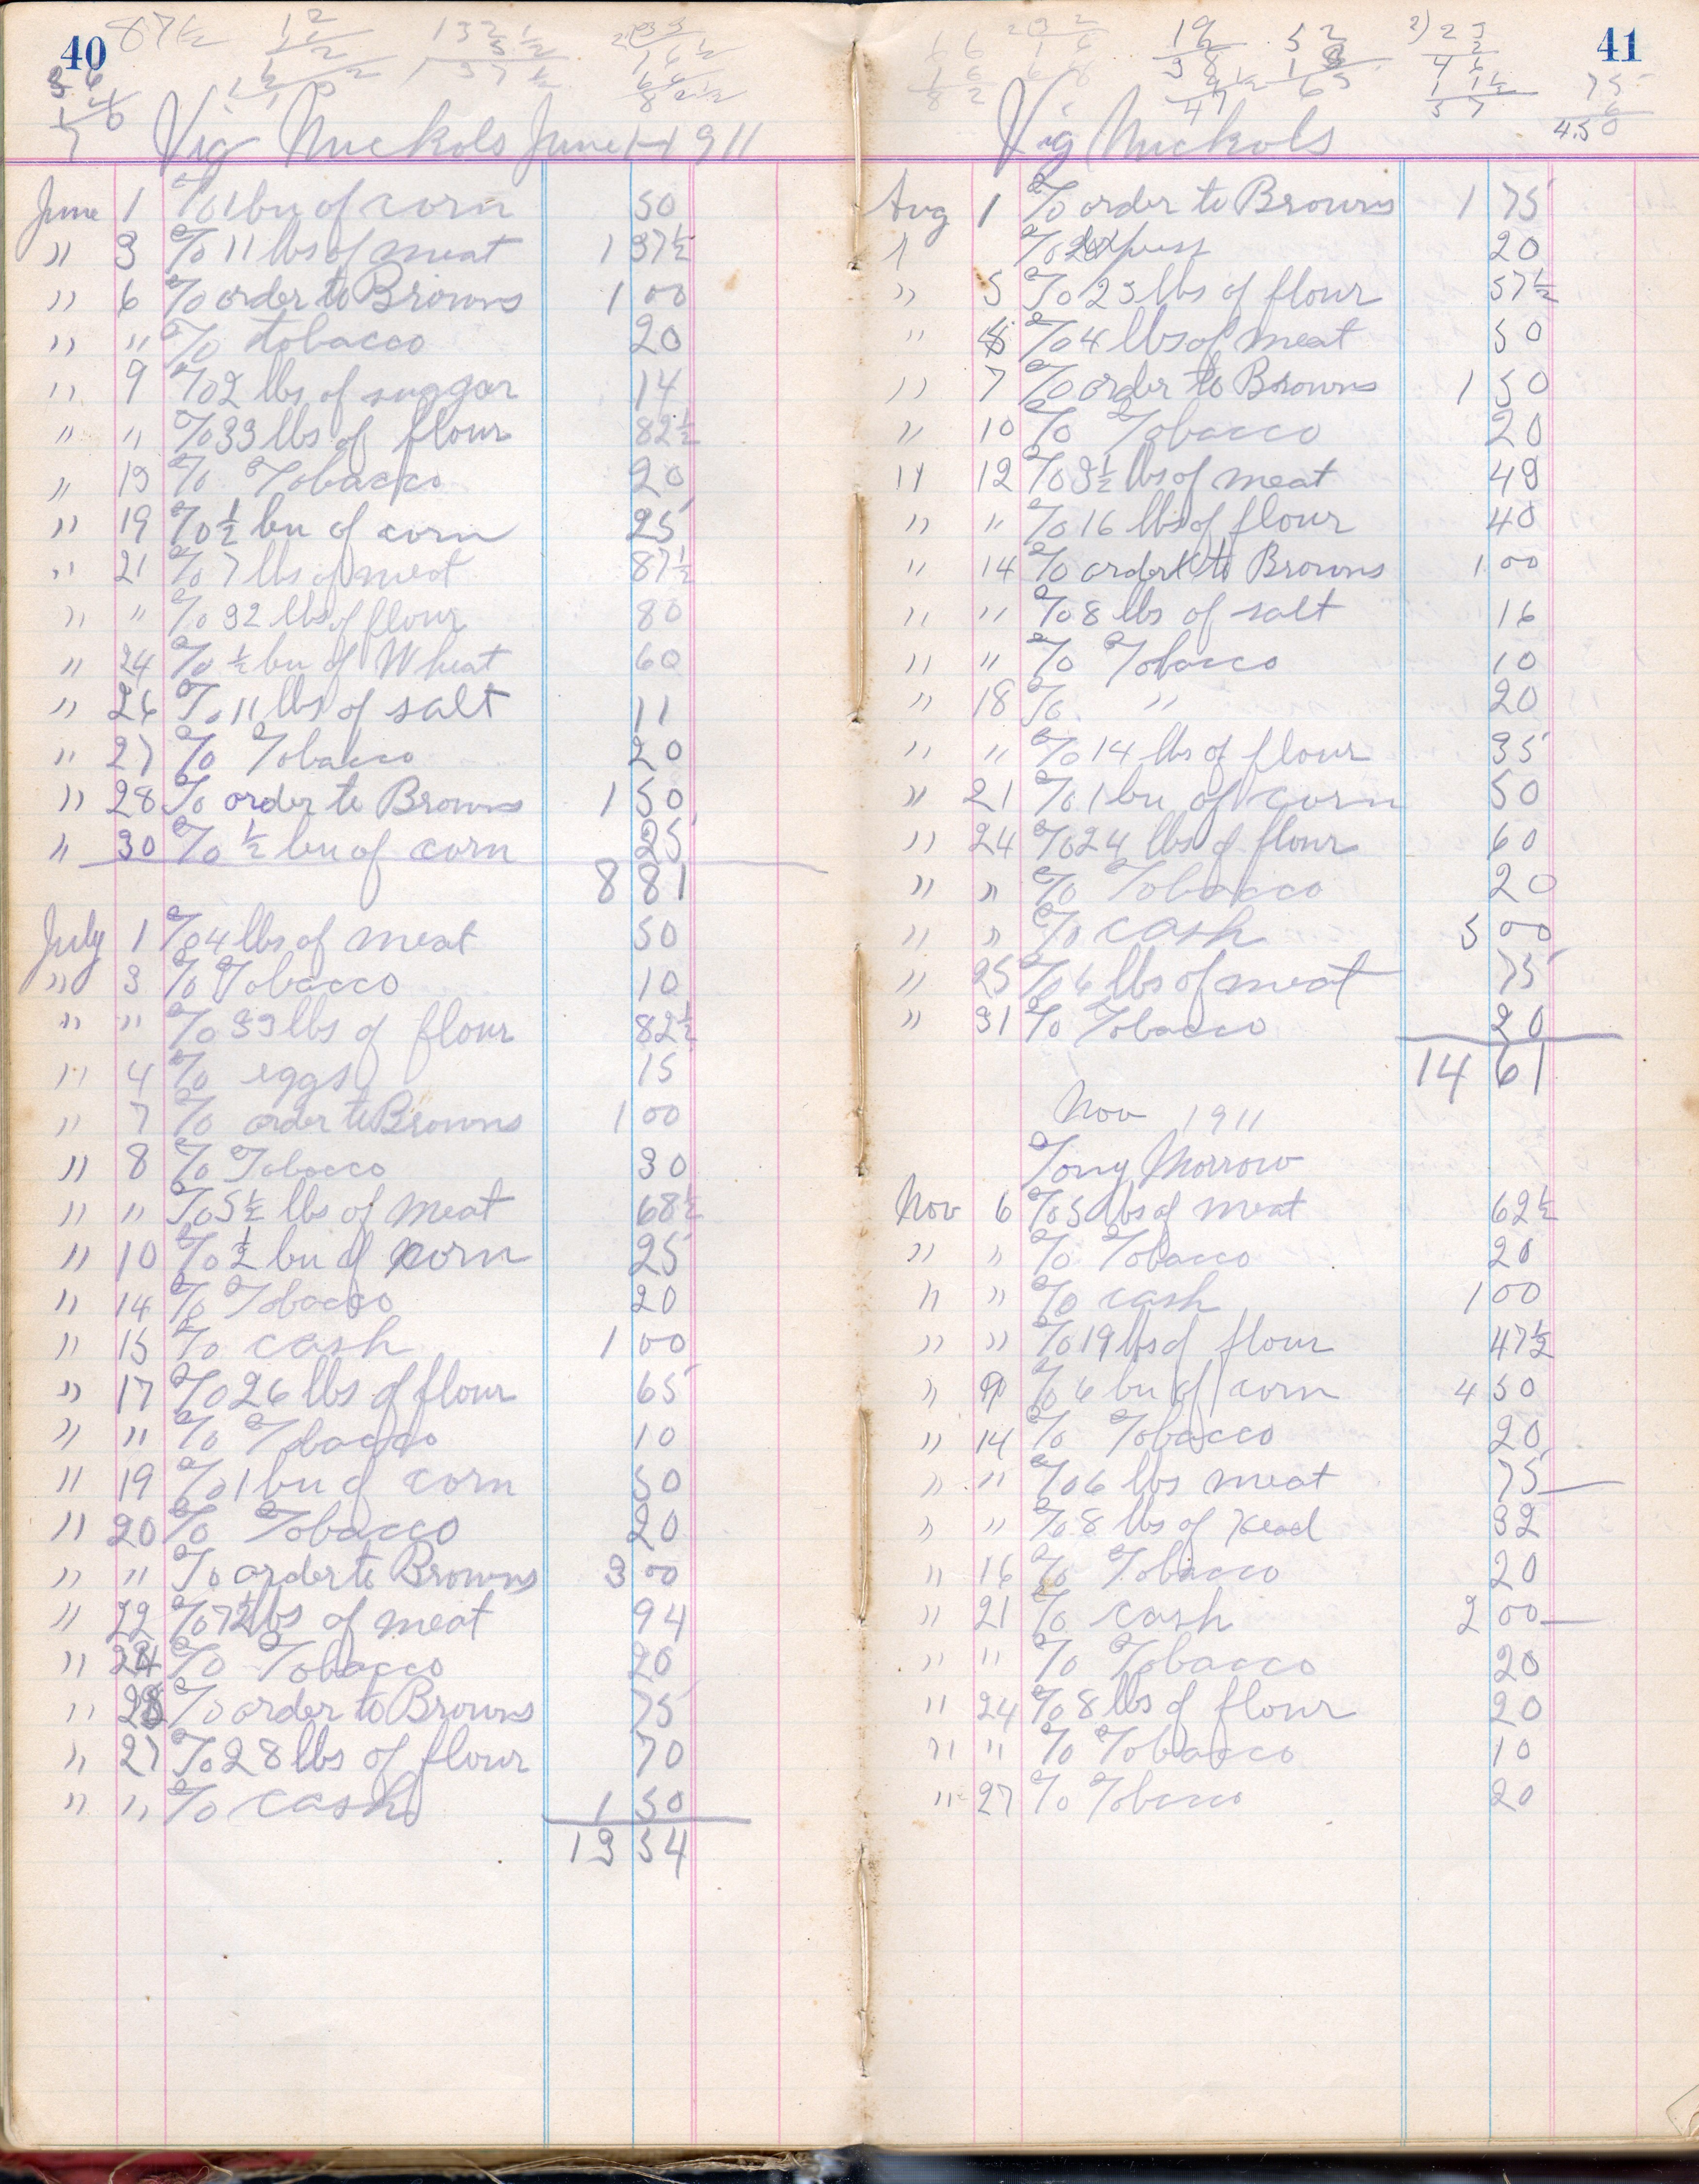 40
87½
Vig Nuckols June 1 1911
June 1 % 1 bu of corn 50
" 3 % 11 lbs of meat 1 37½
" 6 % order to Browns 1 00
" " % tobacco 20
" 9 % 2 lbs of suggar 14
" " % 33 lbs of flour 82½
" 13 % Tobacco 20
" 19 % ½ bu of corn 25
" 21 % 7 lbs of meat 87½
" " % 32 lbs of flour 80
" 24 % ½ bu of Wheat 60
" 26 % 11 lbs of salt 11
" 27 % Tobacco 20
" 28 % order to Browns 1 50
" 30 % ½ bu of corn 25
8 81
July 1 % 4 lbs of meat 50
" 3 % Tobacco 10
" " % 33 lbs of flour 82½
" 4 % eggs 15
" 7 % order to Browns 1 00
" 8 % Tobacco 30
" " % 5½ lbs of meat 68½
" 10 % ½ bu of corn 25
" 14 % Tobacco 20
" 15 % cash 1 00
" 17 % 26 lbs of flour 65
" " % Tobacco 10
" 19 % 1 bu of corn 50
" 20 % Tobacco 20
" " % order to Browns 3 00
" 22 % 7½ lbs of meat 94
" 24 % Tobacco 20
" % order to Browns 75
" 27 % 28 lbs of flour 70
" " % cash 1 50
13 54
41
75
6
4.50
Vig Nuckols
Aug 1 % order to Browns 1 75
" % 20
" 5 % 23 lbs of flour 57½
" % 4 lbs of meat 50
" 7 % order to Browns 1 50
" 10 % Tobacco 20
" 12 % 3½ lbs of meat 43
" " % 16 lbs of flour 40
" 14 % order to Browns 1 00
" " % 8 lbs of salt 16
" " % Tobacco 10
" 18 % " 20
" " % 14 lbs of flour 35
" 21 % 1 bu of corn 50
" 24 % 24 lbs of flour 60
" " % Tobacco 20
" " % cash 5 00
" 25 % 6 lbs of meat 75
" 31 % Tobacco 20
14 61
Nov 1911
Tony Morrow
Nov 6 % 5 lbs of meat 62½
" " % Tobacco 20
" " % cash 1 00
" " % 19 lbs of flour 47½
" 9 % 6 bu of corn 4 50
" 14 % Tobacco 20
" " % 6 lbs meat 75
" " % 8 lbs of 32
" 16 % Tobacco 20
" 21 % cash 2 00
" " % Tobacco 20
" 24 % 8 lbs of flour 20
" " % Tobacco 10
" 27 % Tobacco 20